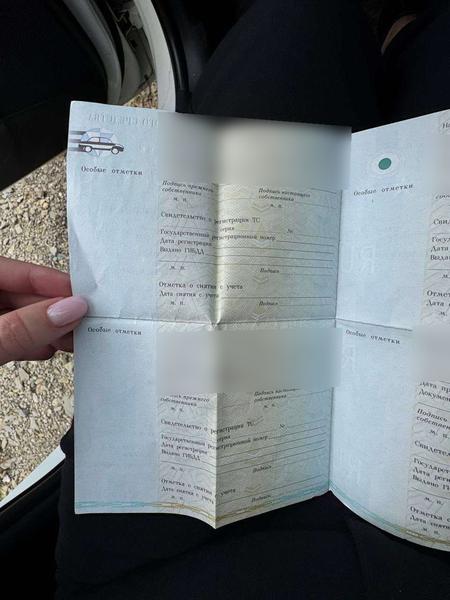 Особые отметки
Подпись прежнего
собственника
м. п.
Подпись настоящего
собственника
м. п.
Свидетельство о регистрации ТС
серия №
Государственный регистрационный номер
Дата регистрации
Выдано ГИБДД
м. п.
Подпись
Отметка о снятии с учета
Дата снятия с учета
м. п.
Подпись
Особые отметки
Особые отметки
прежнего
собственника
м. п.
Подпись
собственника
м. п.
Свидетельство о регистрации ТС
серия №
Государственный регистрационный номер
Дата регистрации
Выдано ГИБДД
м. п.
Подпись
Отметка о снятии с учета
Дата снятия с учета
м. п.
Подпись
Особые отметки
м. п.
м. п.
Подпись
м. п.
м. п.